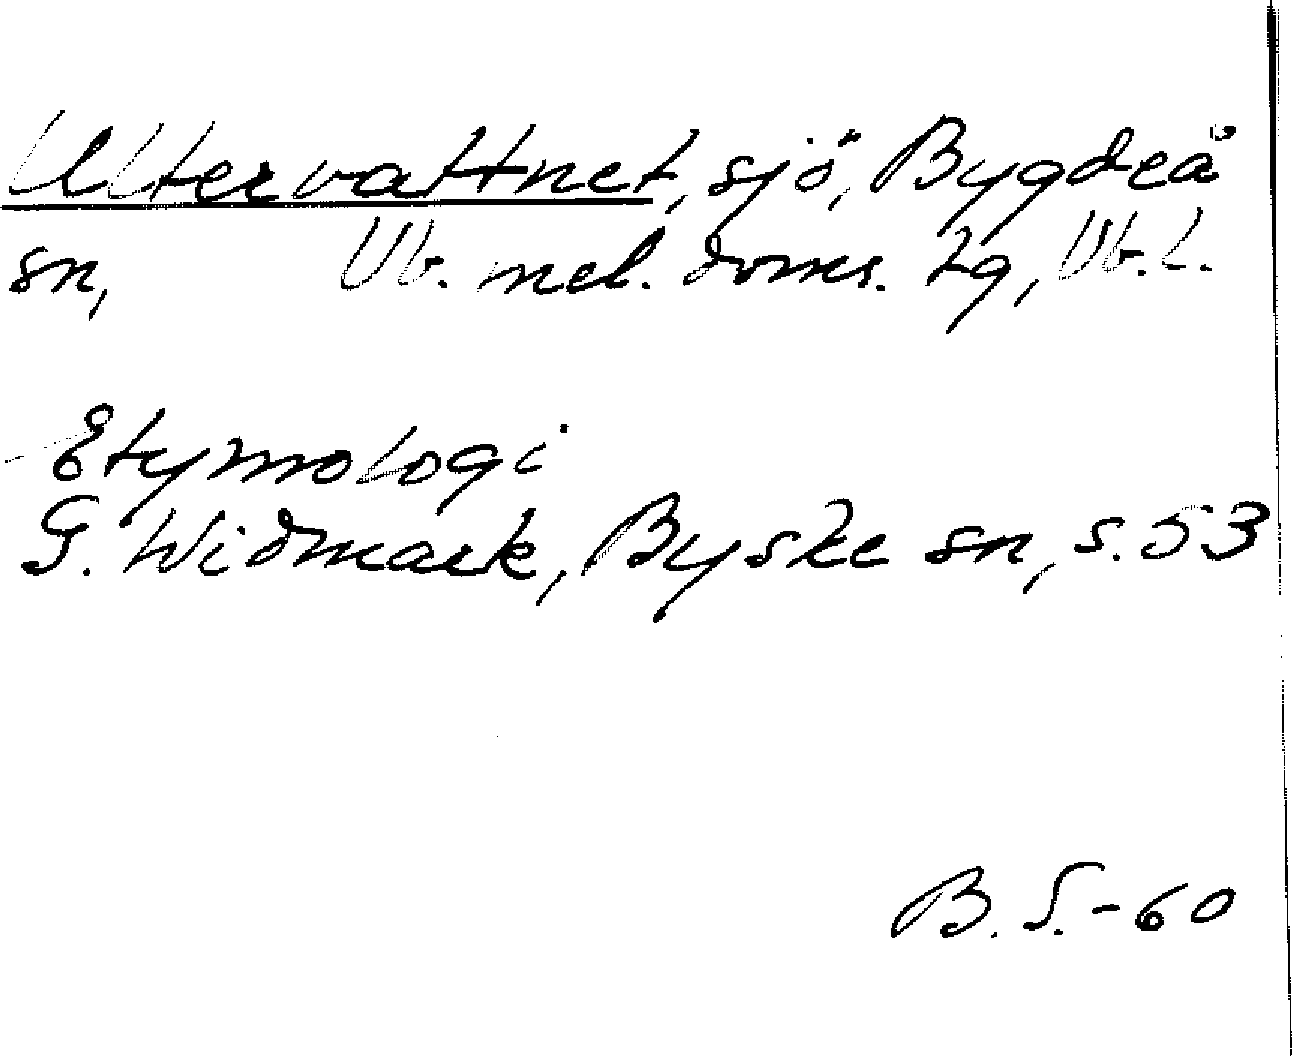 Ultervattnet, sjö, Bygdeå
sn, Vb. mel. doms. tg, Vb. l.
Etymologi
G. Widmark, Byske sn, s. 53
B. S. -60